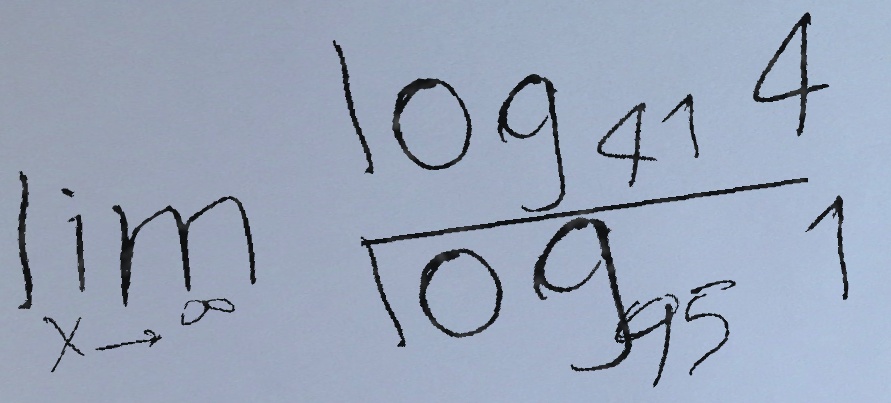 \lim_{x \to \infty} \frac{\log_{41} 4}{\log_{95} 1}